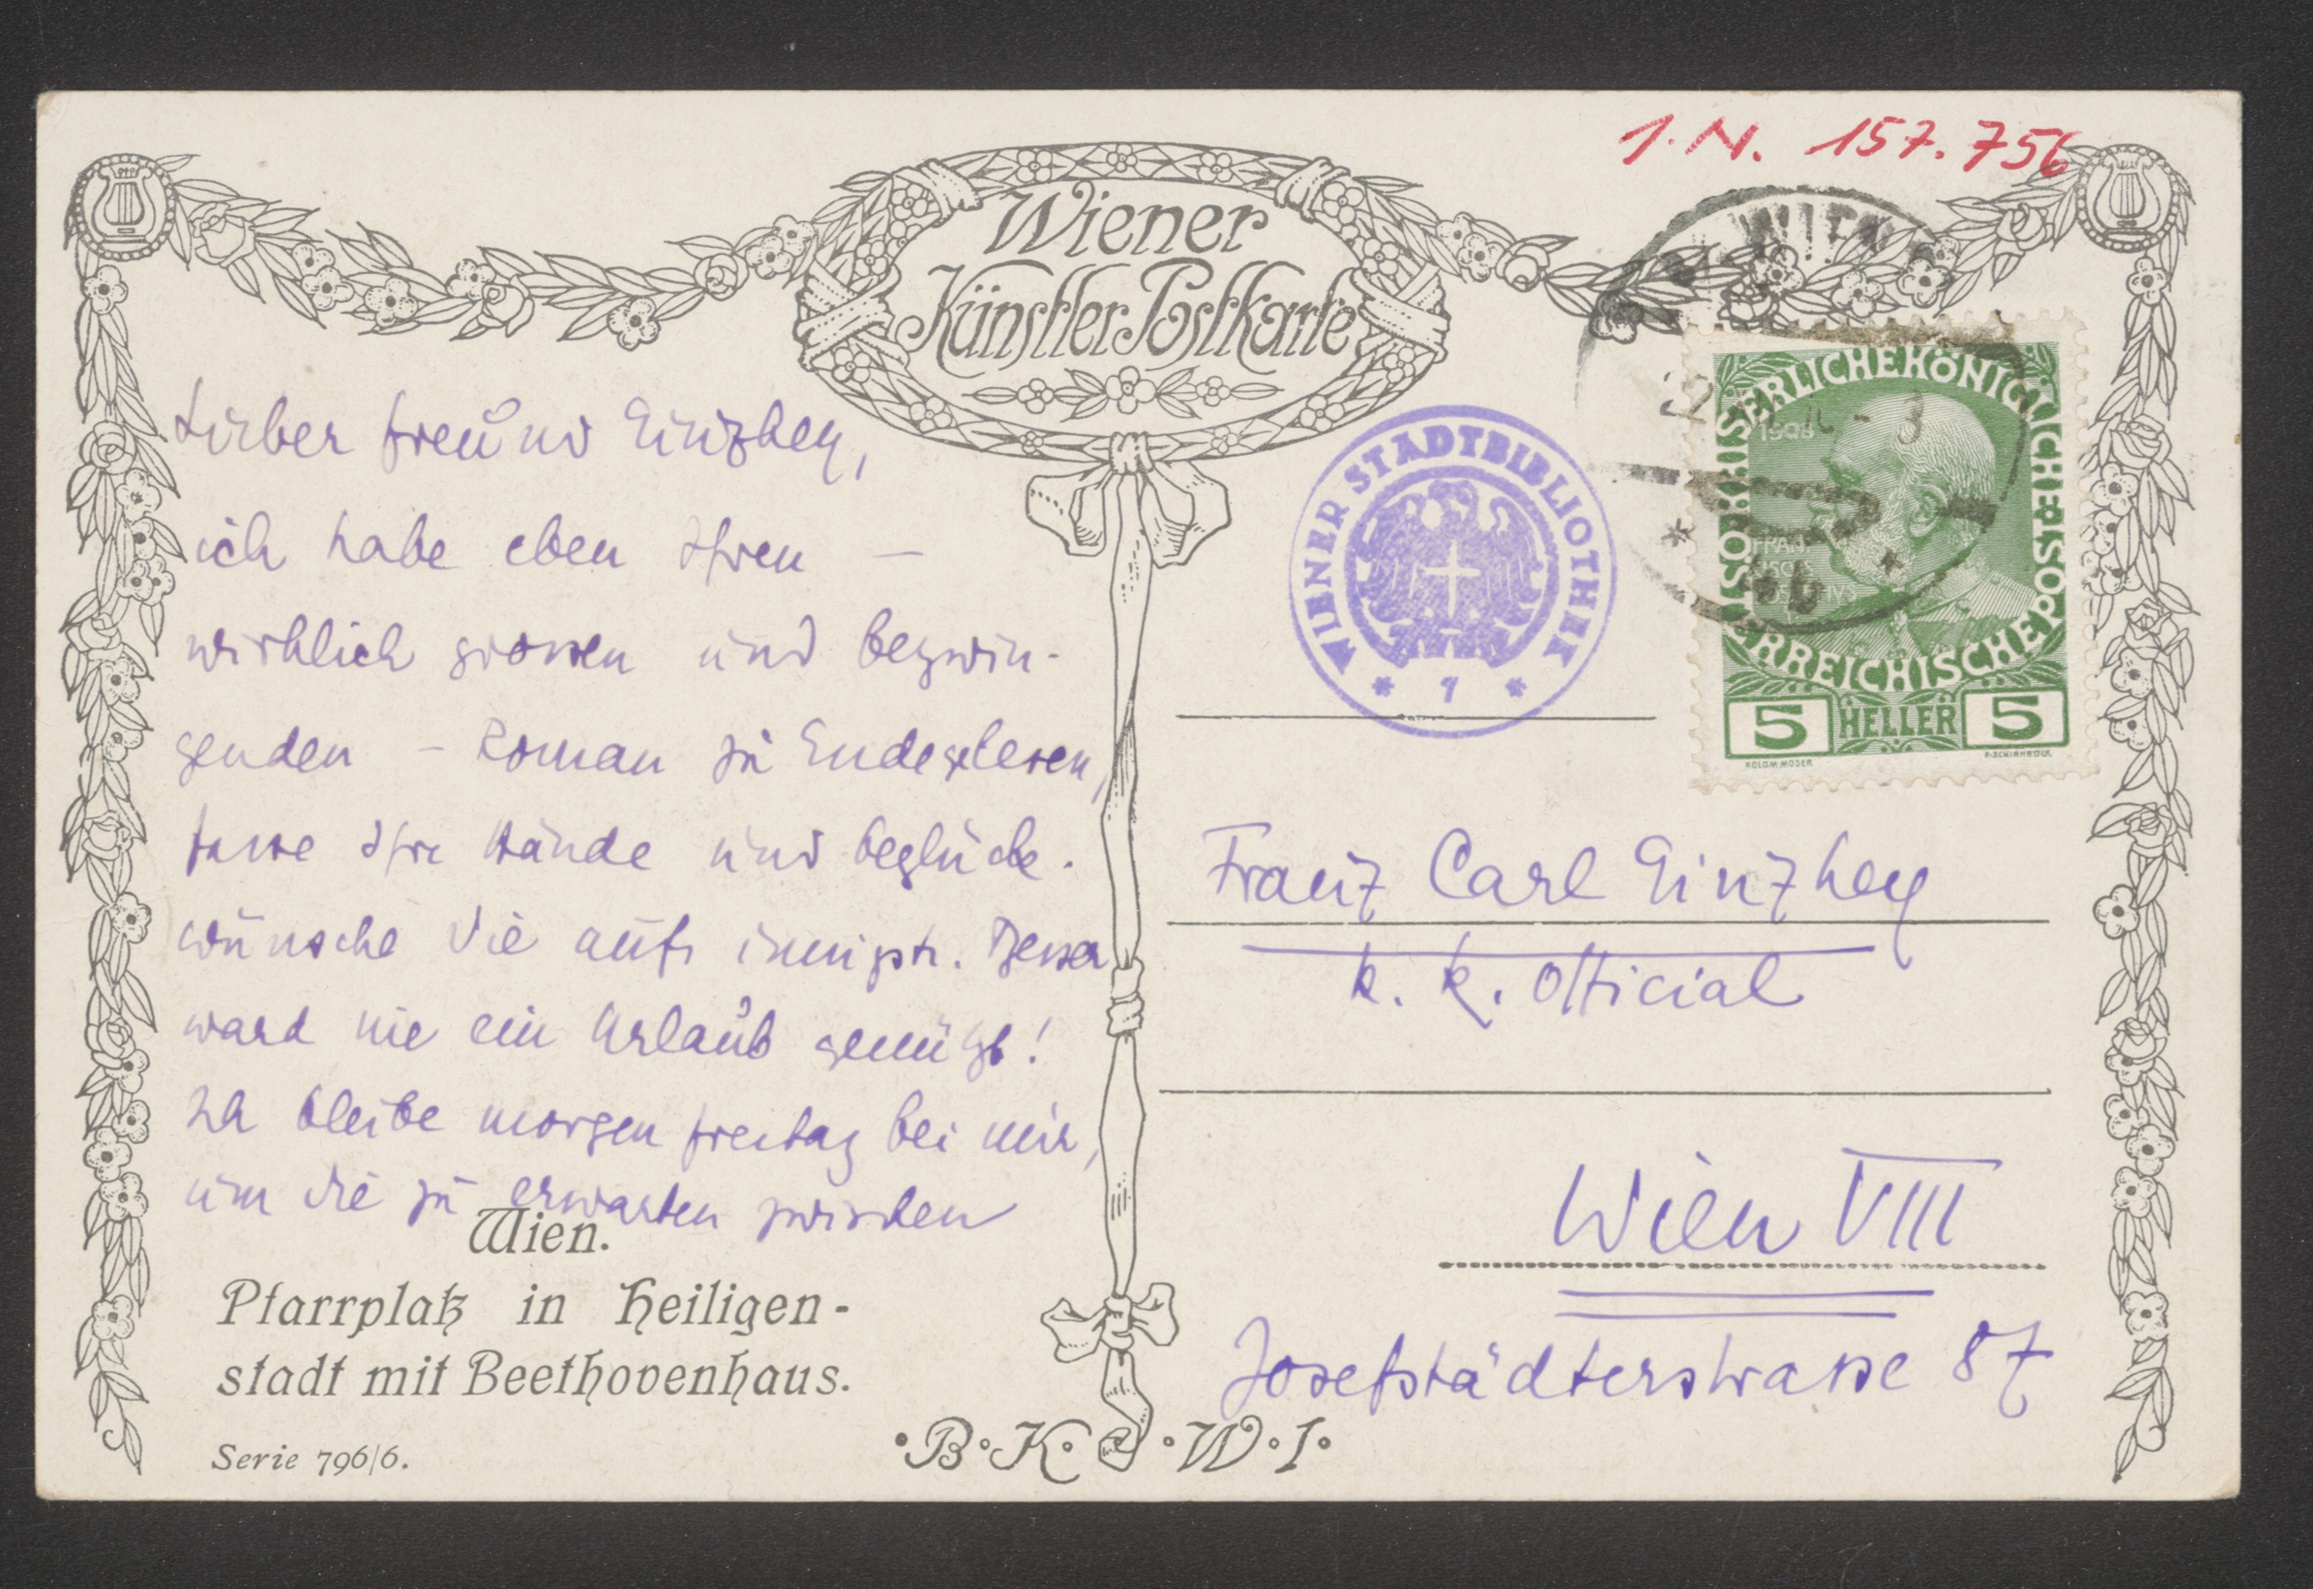 I.N. 157.756
Wiener
Künstler Postkarte
WIEN
KAISERLICHE KÖNIGLICHE ÖSTERREICHISCHE POST
1908
5 HELLER 5
KOLOM·MOSER
F·SCHIRNBÖCK
WIENER STADTBIBLIOTHEK
Lieber Freund Ginzkey,
ich habe eben Ihren –
wirklich grossen und bezwin-
genden – Roman zu Ende gelesen,
fasse Ihre Hände und beglück-
wünsche Sie aufs innigste. Besser
ward nie ein Urlaub genützt!
Ich bleibe morgen Freitag bei mir,
um Sie zu erwarten zwischen
Wien.
Pfarrplatz in Heiligen-
stadt mit Beethovenhaus.
Serie 796/6.
·B·K·W·I·
Franz Carl Ginzkey
k. k. Official
Wien VIII
Josefstädterstrasse 87